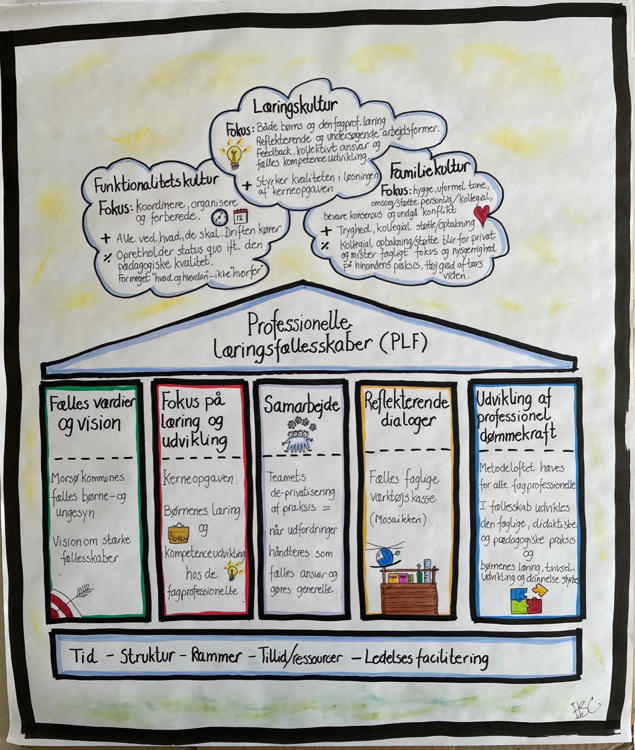 Læringskultur
Fokus: Både børns og den fagprof. læring
Reflekterende og undersøgende arbejdsformer.
Feedback, kollektivt ansvar og
fælles kompetenceudvikling
+ Styrker kvaliteten i løsningen
af kerneopgaven
Funktionalitetskultur
Fokus: koordinere, organisere
og forberede.
12
+ Alle ved, hvad, de skal. Driften kører
% Opretholder status quo ift. den
pædagogiske kvalitet.
For meget "hvad og hvordan - ikke "hvorfor"
Familiekultur
Fokus: hygge, uformel tone,
omsorg/støtte personlig/kollegial,
bevare konsensus og undgå konflikt
+ Tryghed, kollegial støtte/opbakning
% Kollegial opbakning/støtte blir for privat
og mister fagligt fokus og nysgerrighed
på hinandens praksis. Høj grad af tavs
viden.
Professionelle
læringsfællesskaber (PLF)
Fælles værdier
og vision
Morsø kommunes
fælles børne- og
ungesyn
Vision om stærke
fællesskaber
Fokus på
læring og
udvikling
Kerneopgaven.
Børnenes læring
og
Kompetenceudvikling
hos de
fagprofessionelle.
Samarbejde
Teamets
de-privatisering
af praksis =
når udfordringer
håndteres som
fælles ansvar og
gøres generelle.
Reflekterende
dialoger
Fælles faglige
værktøjskasse
(Mosaikken)
Udvikling af
professionel
dømmekraft
Metodeloftet hæves
for alle fagprofessionelle
I fællesskab udvikles
den faglige, didaktiske
og pædagogiske praksis
og
Børnenes læring, trivsel,
udvikling og dannelse styrkes
Tid - Struktur - Rammer - Tillid/ressourcer - Ledelsesfacilitering
HBC